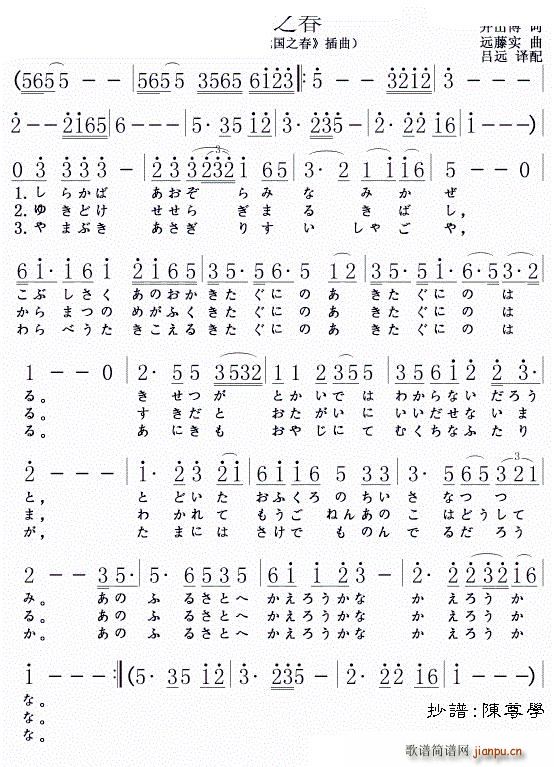 之春
国之春》插曲)
井出博 词
远藤实 曲
吕远 译配
(5655 5 - - 5655 3565 6123 |: 5 - - 5 6123 |
2 - - 2165 | 6 - - - | 5· 35 12 | 3· 235 2· 6 | 1 - - - )
0 3 33 3 - | 23 3232 1 65 | 3· 2 1 1 16 | 5 - - 0 |
1.しらかば あおぞ らみなみかぜ
2.ゆきどけ せせら ぎまるきばし,
3.やまぶき あさぎ りすいしゃごや,
6 1· 16 1 | 2 1 6 5 | 35· 56· 5 12 | 35· 51· 65 3·2 |
こぶしさく あのおか きたぐにのあ きたぐにのは
からまつの めがふく きたぐにのあ きたぐにのは
わらべうた きこえる きたぐにのあ きたぐにのは
1 - - 0 | 2· 55 3532 | 11 2 355 | 3561 2 23· |
る。 きせつが とかいでは わからないだろう
る。 すきだと おたがいに いいだせないま
る。 あにきも おやじにて むくちなふたり
2 - - - | 1· 23 21 | 6656 5 33 | 2· 56 65 321 |
と, とどいた おふくろのちいさなつつ
ま, わかれて もうごねんあのこはどうして
が, たまには さけでものんでるだろう
2 - - 35· | 5· 6 535 | 61 1 23 - | 2 2 232 16 |
み。 あのふるさとへ かえろうかな かえろうか
る。 あのふるさとへ かえろうかな かえろうか
か。 あのふるさとへ かえろうかな かえろうか
1 - - - :| (5· 35 12 | 3· 235 2· 6 | 1 - - - )||
な。
な。
な。
抄譜:陳尊學
歌谱简谱网
jianpu.cn